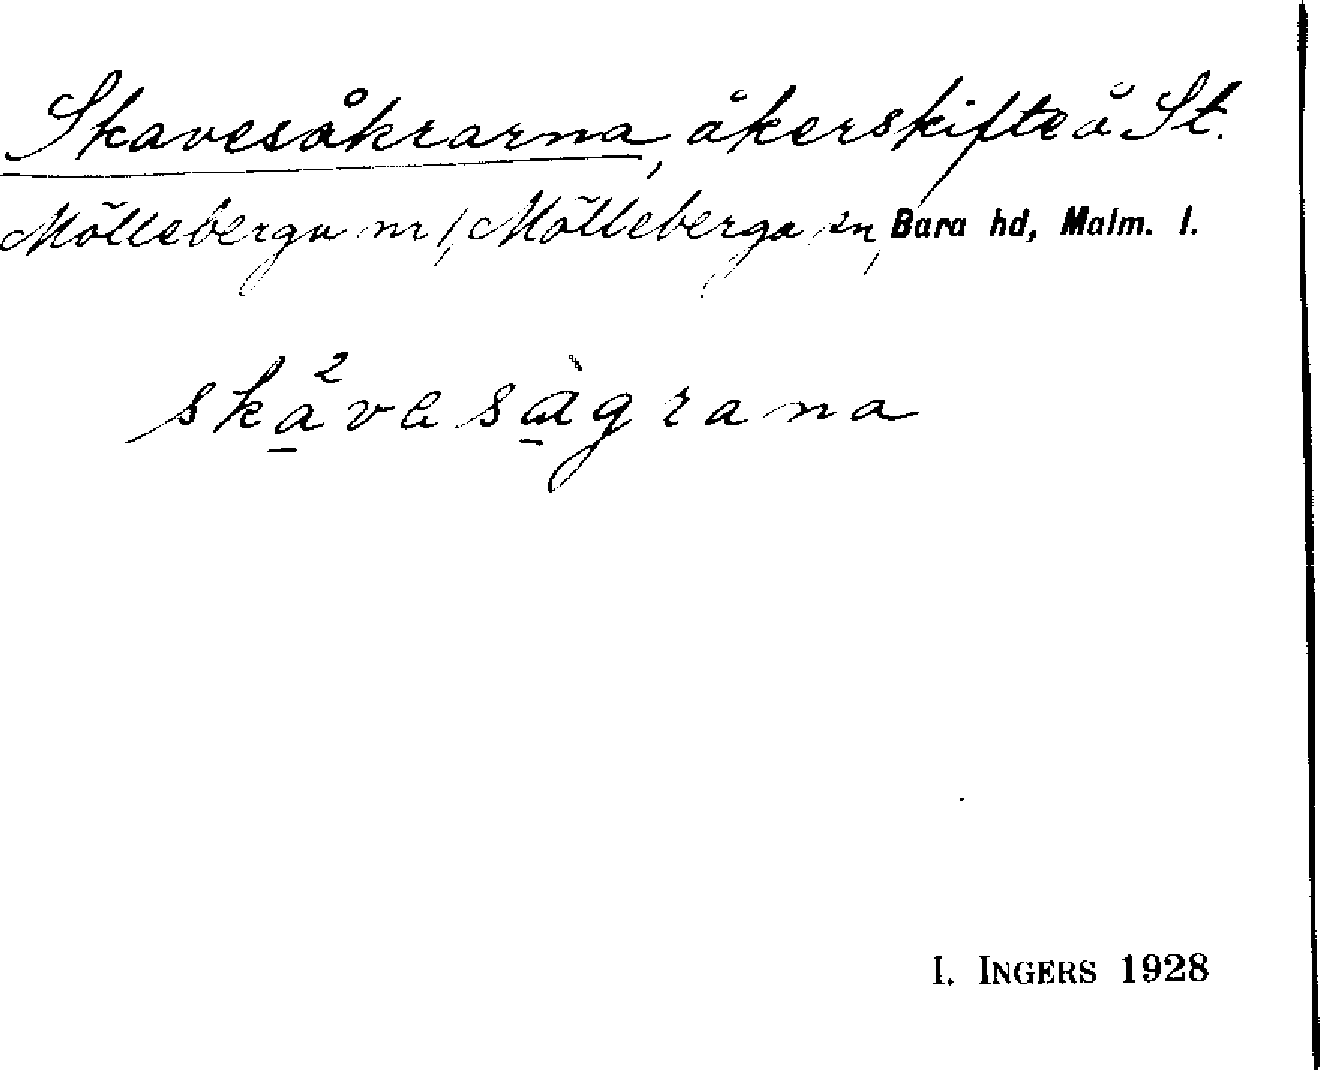 Skavesåkrarna, åkerskifte å St.
Mölleberga nr 1, Mölleberga sn, Bara hd, Malm. l.
ska̱²vesà̱grana
I. INGERS 1928